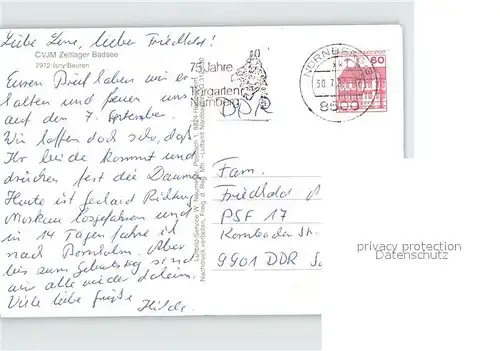 Liebe Lene, lieber Friedhold!
CVJM Zeltlager Badsee
7972 Isny/Beuren
Euren Brief haben wir er-
halten und freuen uns
auf den 7. September.
Wir hoffen doch sehr, daß
Ihr beide kommt und
drücken fest die Daumen
Heute ist Gerhard Richtung
Moskau losgefahren und
in 14 Tagen fahre ich
nach Bornholm. Aber
bis zum Geburtstag sind
wir alle wieder daheim.
Viele liebe Grüße
Hilde
75 Jahre
Tiergarten
Nürnberg
DDR
NÜRNBERG
30.7.
8500
60
Fam.
Friedhold
PSF 17
Str.
9901 DDR
privacy protection
oldthing.de